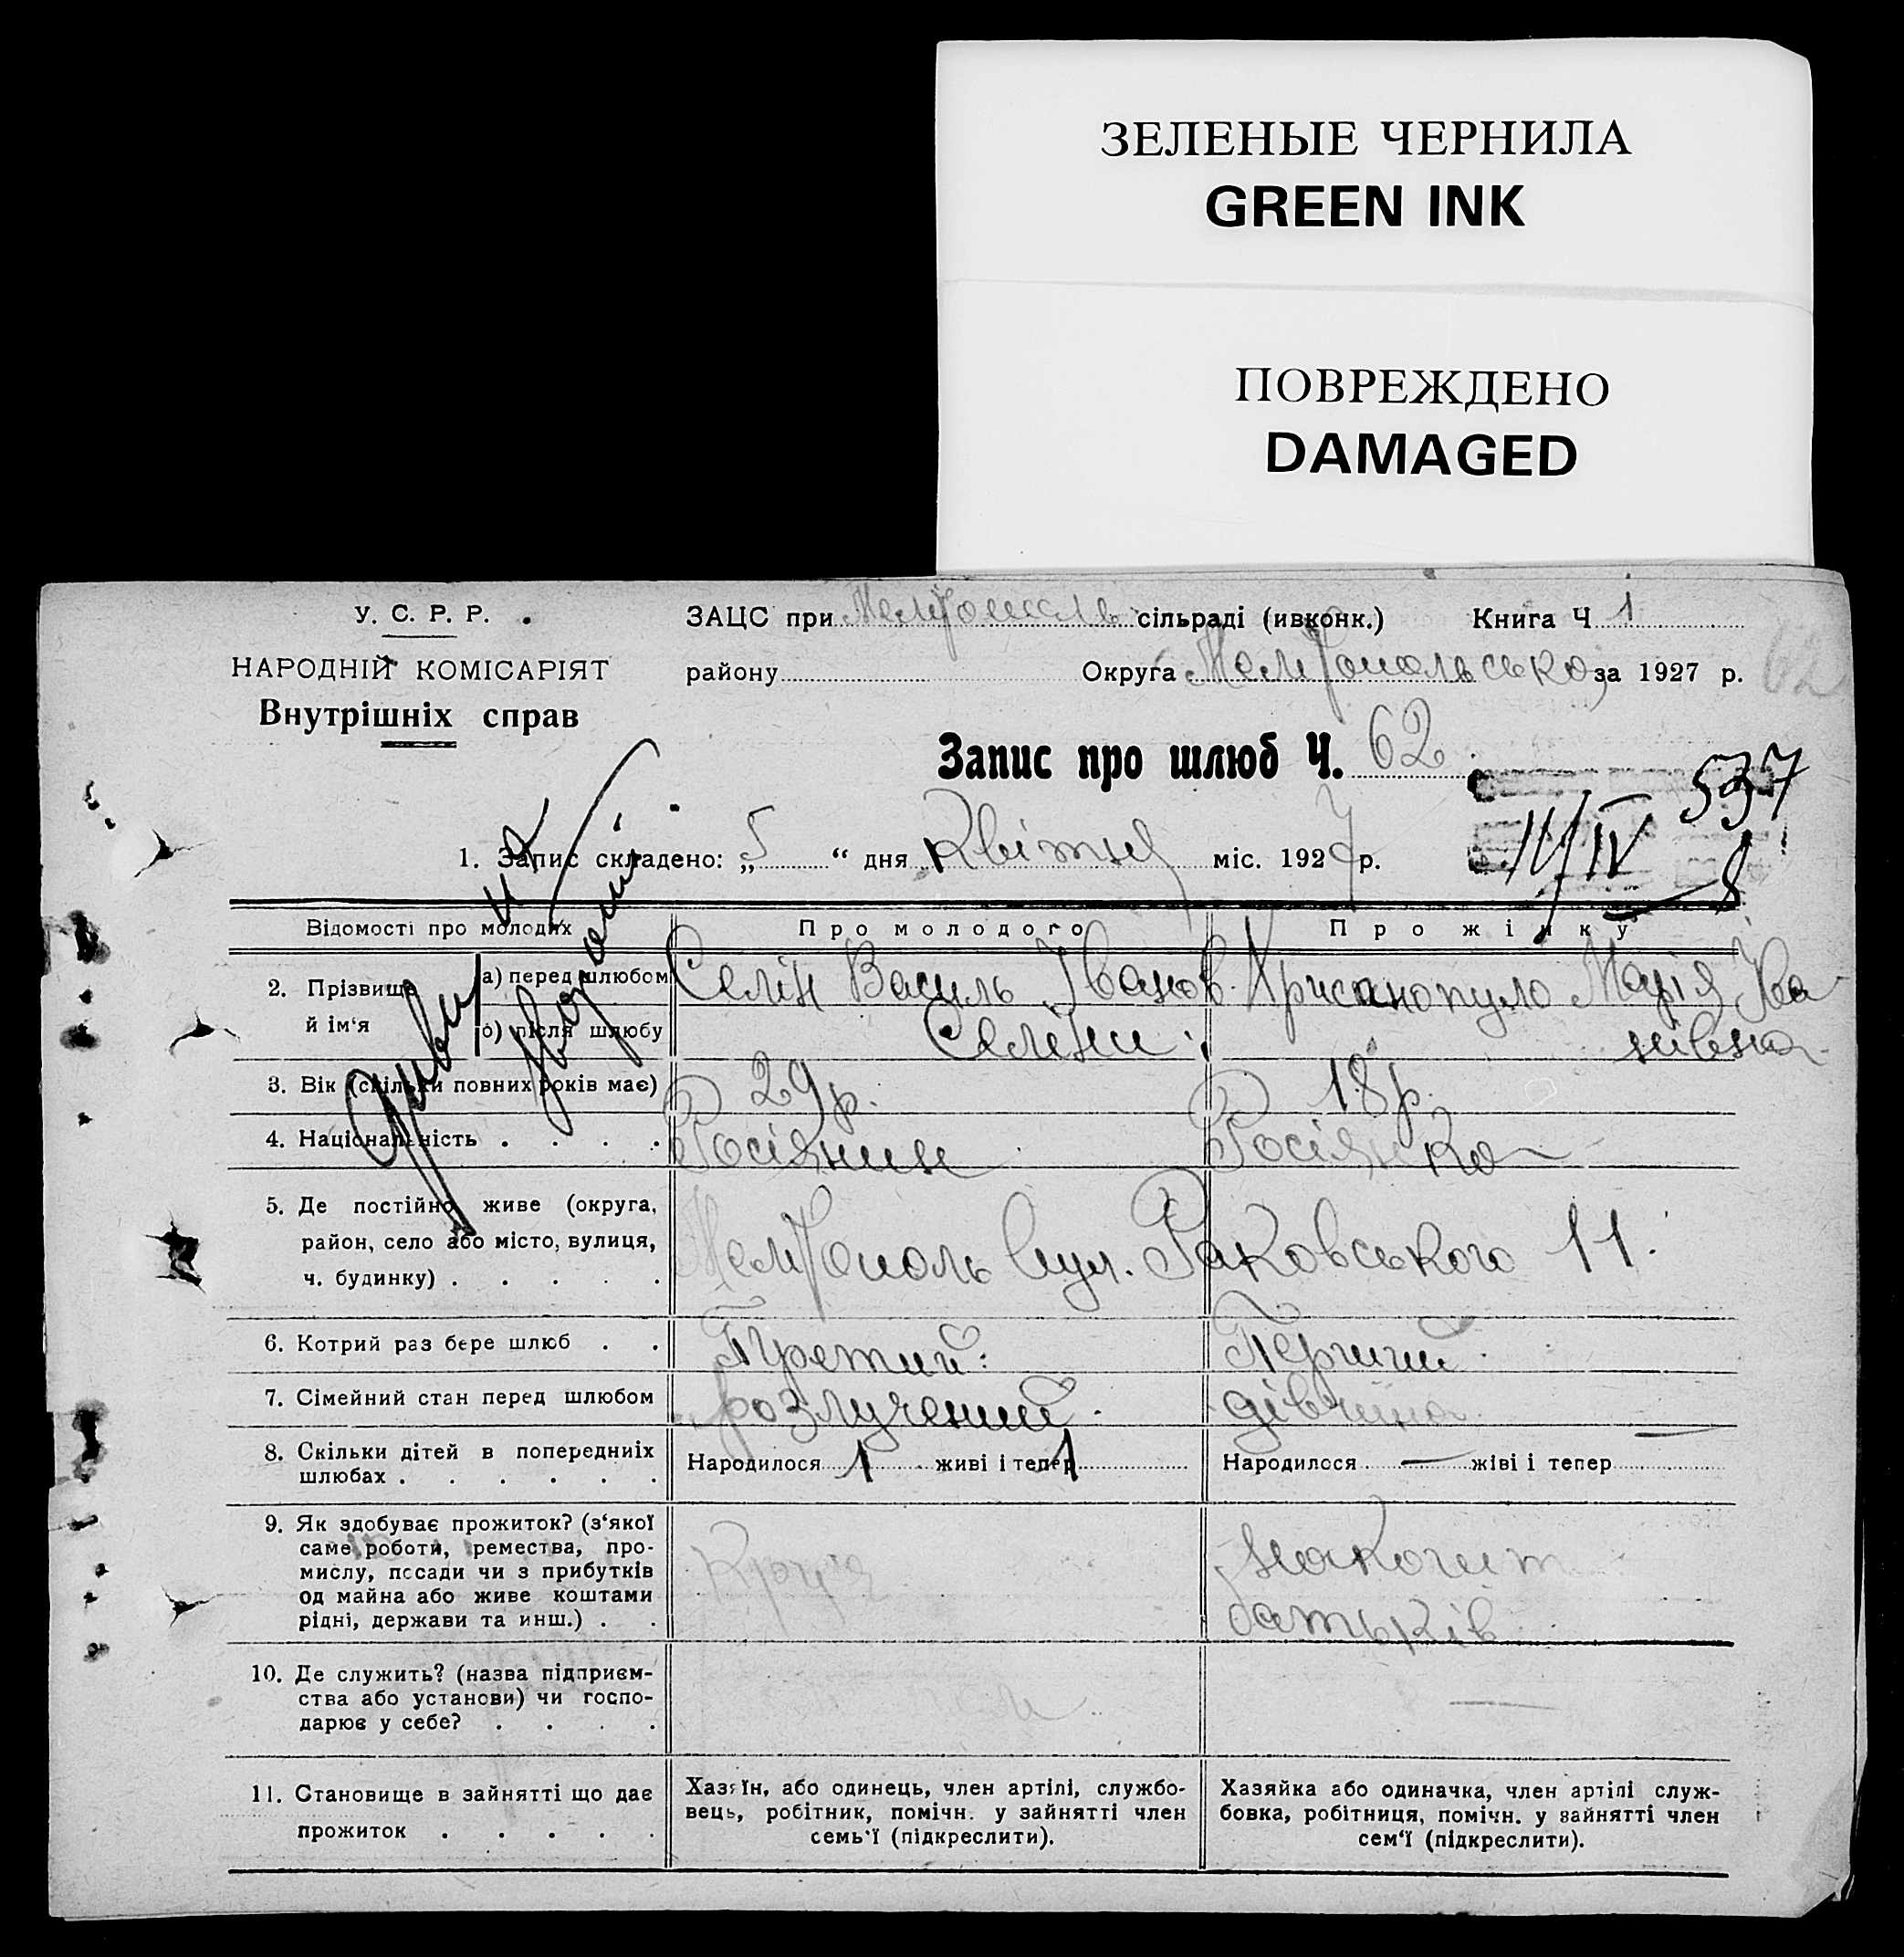 ЗЕЛЕНЫЕ ЧЕРНИЛА
GREEN INK
ПОВРЕЖДЕНО
DAMAGED
У. С. Р. Р.
НАРОДНІЙ КОМІСАРІЯТ
Внутрішніх справ
ЗАЦС при Мелітополь сільраді (ивконк.) Книга Ч 1
району Округа Мелітопольсько за 1927 р.
62
Запис про шлюб Ч. 62
537
11/IV
1. Запис складено: „5“ дня Квітня міс. 1927 р.
Відомості про молодих Про молодого Про жінку
2. Прізвище й ім‘я
а) перед шлюбом Селін Василь Іванов. Хрисанопуло Марія Іва
нівна
б) після шлюбу Селіни
3. Вік (скільки повних років має) 29 р. 18 р.
4. Національність Росіянин Росіянка
5. Де постійно живе (округа,
район, село або місто, вулиця,
ч. будинку) Мелітополь вул. Раковського 11.
6. Котрий раз бере шлюб Третий Перший
7. Сімейний стан перед шлюбом розлучений дівчина
8. Скільки дітей в попередниіх
шлюбах Народилося 1 живі і тепер 1 Народилося — жіві і тепер —
9. Як здобуває прожиток? (з‘якої
саме роботи, ремества, про-
мислу, посади чи з прибутків
од майна або живе коштами
рідні, держави та инш.)
батьків
10. Де служить? (назва підприєм-
ства або установи) чи госпо-
дарює у себе? —
11. Становище в зайнятті що дає
прожиток
Хазяїн, або одинець, член артілі, службо-
вець, робітник, помічн. у зайнятті член
семь‘ї (підкреслити).
Хазяйка або одиначка, член артілі служ-
бовка, робітниця, помічн. у зайнятті член
сем‘ї (підкреслити).